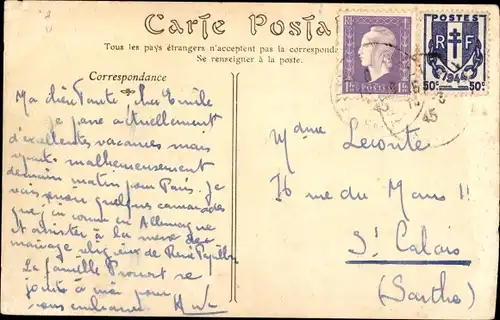 Carte Postal
Tous les pays étrangers n'acceptent pas la correspond
Se renseigner à la poste.
Correspondance
Ma chère Tante, cher Emile
je passe actuellement
d'excellentes vacances mais
malheureusement
demain matin pour Paris. Je
vais quelques camarades
que j'ai connu en Allemagne
et assister à la messe de
mariage religieux de René
La famille Prouvost se
joint à moi pour
vous embrasser
Mme Leconte
76 rue du Mans
St Calais
(Sarthe)
POSTES
R F
1944
50c 50c
45